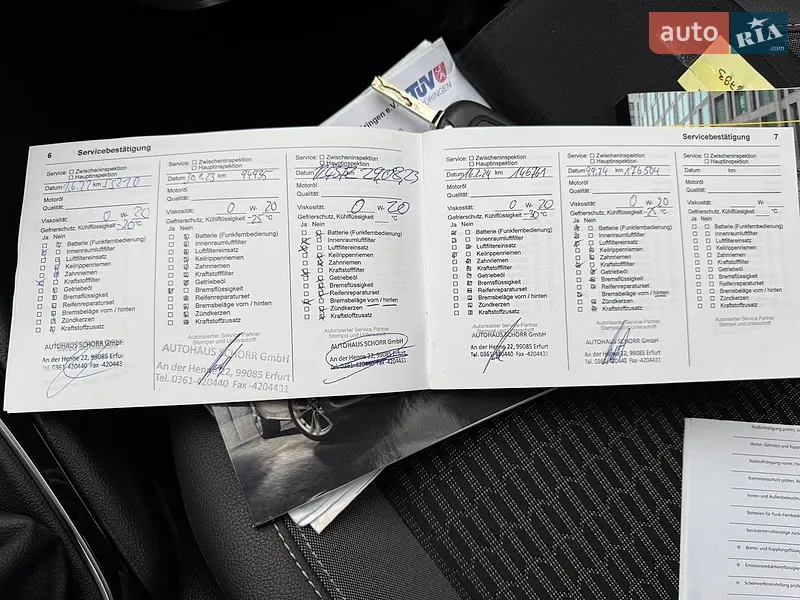 auto RIA .com
TÜV
THÜRINGEN
ringen e.V.
6 Servicebestätigung
Service: Zwischeninspektion
Hauptinspektion
km
Motoröl
Qualität:
Viskosität: 0 W- 20
Gefrierschutz, Kühlflüssigkeit -20 °C
Ja Nein
Batterie (Funkfernbedienung)
Innenraumluftfilter
Luftfiltereinsatz
Keilrippenriemen
Zahnriemen
Kraftstofffilter
Getriebeöl
Bremsflüssigkeit
Reifenreparaturset
Bremsbeläge vorn / hinten
Zündkerzen
Kraftstoffzusatz
AUTOHAUS SCHORR GmbH
An der Henne 22, 99085 Erfurt
Tel. 0361-420440 Fax -4204431
Service: Zwischeninspektion
Hauptinspektion
Datum km 94935
Motoröl
Qualität:
Viskosität: 0 W- 20
Gefrierschutz, Kühlflüssigkeit -25 °C
Ja Nein
Batterie (Funkfernbedienung)
Innenraumluftfilter
Luftfiltereinsatz
Keilrippenriemen
Zahnriemen
Kraftstofffilter
Getriebeöl
Bremsflüssigkeit
Reifenreparaturset
Bremsbeläge vorn / hinten
Zündkerzen
Kraftstoffzusatz
Autorisierter Service Partner
Stempel und Unterschrift
AUTOHAUS SCHORR GmbH
An der Henne 22, 99085 Erfurt
Tel. 0361-420440 Fax -4204431
Service: Zwischeninspektion
Hauptinspektion
Datum 29.08.23
Motoröl
Qualität:
Viskosität: 0 W- 20
Gefrierschutz, Kühlflüssigkeit °C
Ja Nein
Batterie (Funkfernbedienung)
Innenraumluftfilter
Luftfiltereinsatz
Keilrippenriemen
Zahnriemen
Kraftstofffilter
Getriebeöl
Bremsflüssigkeit
Reifenreparaturset
Bremsbeläge vorn / hinten
Zündkerzen
Kraftstoffzusatz
Autorisierter Service Partner
Stempel und Unterschrift
AUTOHAUS SCHORR GmbH
An der Henne 22, 99085 Erfurt
Tel. 0361-420440 Fax -4204431
Servicebestätigung 7
Service: Zwischeninspektion
Hauptinspektion
Datum 16.2.24 km 146761
Motoröl
Qualität:
Viskosität: 0 W- 20
Gefrierschutz, Kühlflüssigkeit -30 °C
Ja Nein
Batterie (Funkfernbedienung)
Innenraumluftfilter
Luftfiltereinsatz
Keilrippenriemen
Zahnriemen
Kraftstofffilter
Getriebeöl
Bremsflüssigkeit
Reifenreparaturset
Bremsbeläge vorn / hinten
Zündkerzen
Kraftstoffzusatz
Autorisierter Service Partner
Stempel und Unterschrift
AUTOHAUS SCHORR GmbH
An der Henne 22, 99085 Erfurt
Tel. 0361-420440 Fax -4204431
Service: Zwischeninspektion
Hauptinspektion
Datum km 176504
Motoröl
Qualität:
Viskosität: 0 W- 20
Gefrierschutz, Kühlflüssigkeit -25 °C
Ja Nein
Batterie (Funkfernbedienung)
Innenraumluftfilter
Luftfiltereinsatz
Keilrippenriemen
Zahnriemen
Kraftstofffilter
Getriebeöl
Bremsflüssigkeit
Reifenreparaturset
Bremsbeläge vorn / hinten
Zündkerzen
Kraftstoffzusatz
Autorisierter Service Partner
Stempel und Unterschrift
AUTOHAUS SCHORR GmbH
An der Henne 22, 99085 Erfurt
Tel. 0361-420440 Fax -4204431
Service: Zwischeninspektion
Hauptinspektion
Datum km
Motoröl
Qualität:
Viskosität: W-
Gefrierschutz, Kühlflüssigkeit °C
Ja Nein
Batterie (Funkfernbedienung)
Innenraumluftfilter
Luftfiltereinsatz
Keilrippenriemen
Zahnriemen
Kraftstofffilter
Getriebeöl
Bremsflüssigkeit
Reifenreparaturset
Bremsbeläge vorn / hinten
Zündkerzen
Kraftstoffzusatz
Autorisierter Service Partner
Stempel und Unterschrift
Motor, Getriebe und
Radaufhängung vorne
Korrosionsschutz prüfen,
Innen- und Außenbeleuchtung
Batterien für Funk-Fernbedienung
Serviceintervallanzeige
Brems- und Kupplungsflüssigkeit
Scheinwerfereinstellung prüfen